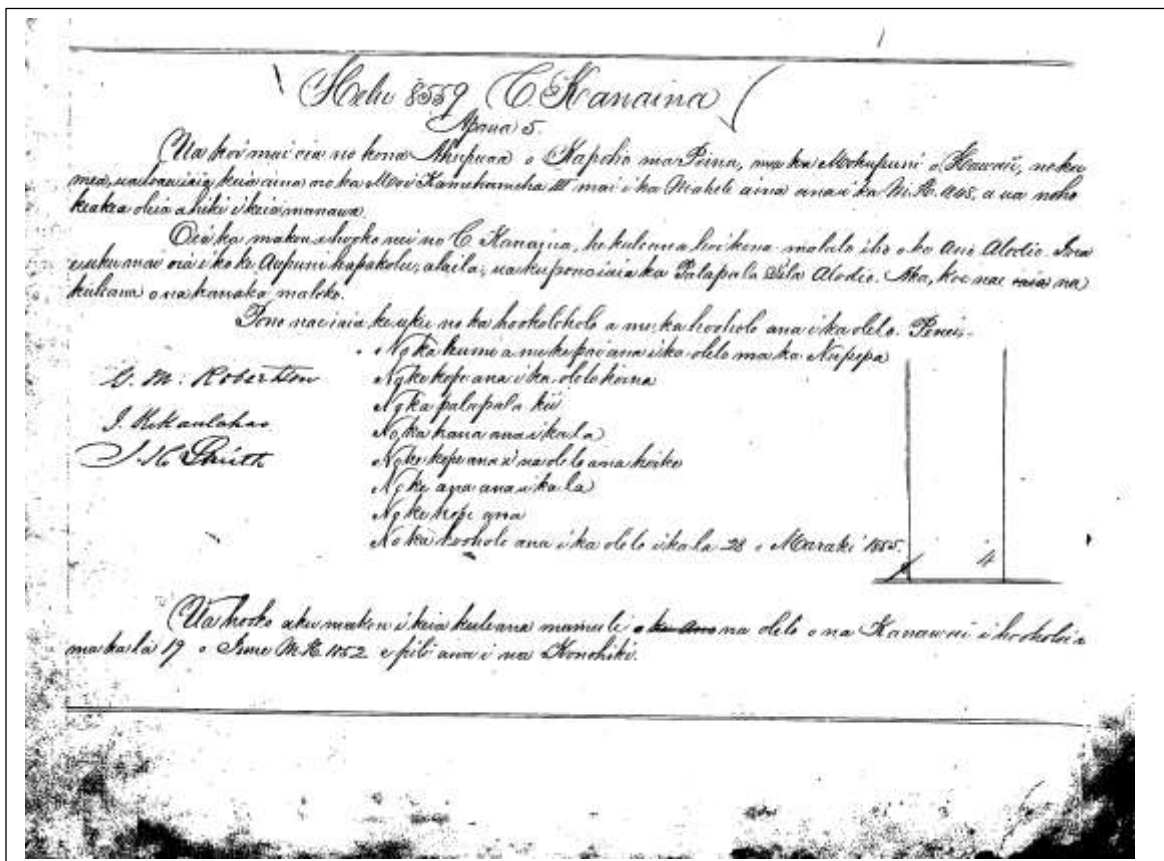 Helu 8559 C. Kanaina
Apana 5.
Ua koi mai oia no kona Ahupuaa o Kapoho ma Puna, ma ka Mokupuni o Hawaii, no ka
mea, ua loaa iaia keia aina no ka Moi Kamehameha III mai i ka Mahele aina ana i ka M.H. 1848, a ua noho
keakea oleia a hiki i keia manawa.
Oia ka makou e hooko nei no C. Kanaina, he kuleana koikena malalo iho o ke Ano Alodio. Ina
e uku mai oia i ko ke Aupuni hapakolu, alaila, ua ku pono iaia ka Palapala Sila Alodio. Aka, koe nae iaia na
kuleana o na kanaka maloko.
Pono nae iaia ke uku no ka hookolokolo a me ka hooholo ana i ka olelo. Penei,
No ka kumu a me ke pai ana i ka olelo ma ka Nupepa
No ke kope ana i ka olelo koina
No ka palapala kii
No ka hana ana i ka la
No ke kope ana i na olelo ana hoike
No ke ana ana i ka la
No ke kope ana
No ka hooholo ana i ka olelo i ka la 28 o Maraki 1855.
4
G. M. Robertson
J. Kekaulahao
J. H. Smith
Ua hooko aku makou i keia kuleana mamuli o ke Ano na olelo o na Kanawai i hooholoia
ma ka la 19 o Iune M.H. 1852 e pili ana i na Konohiki.